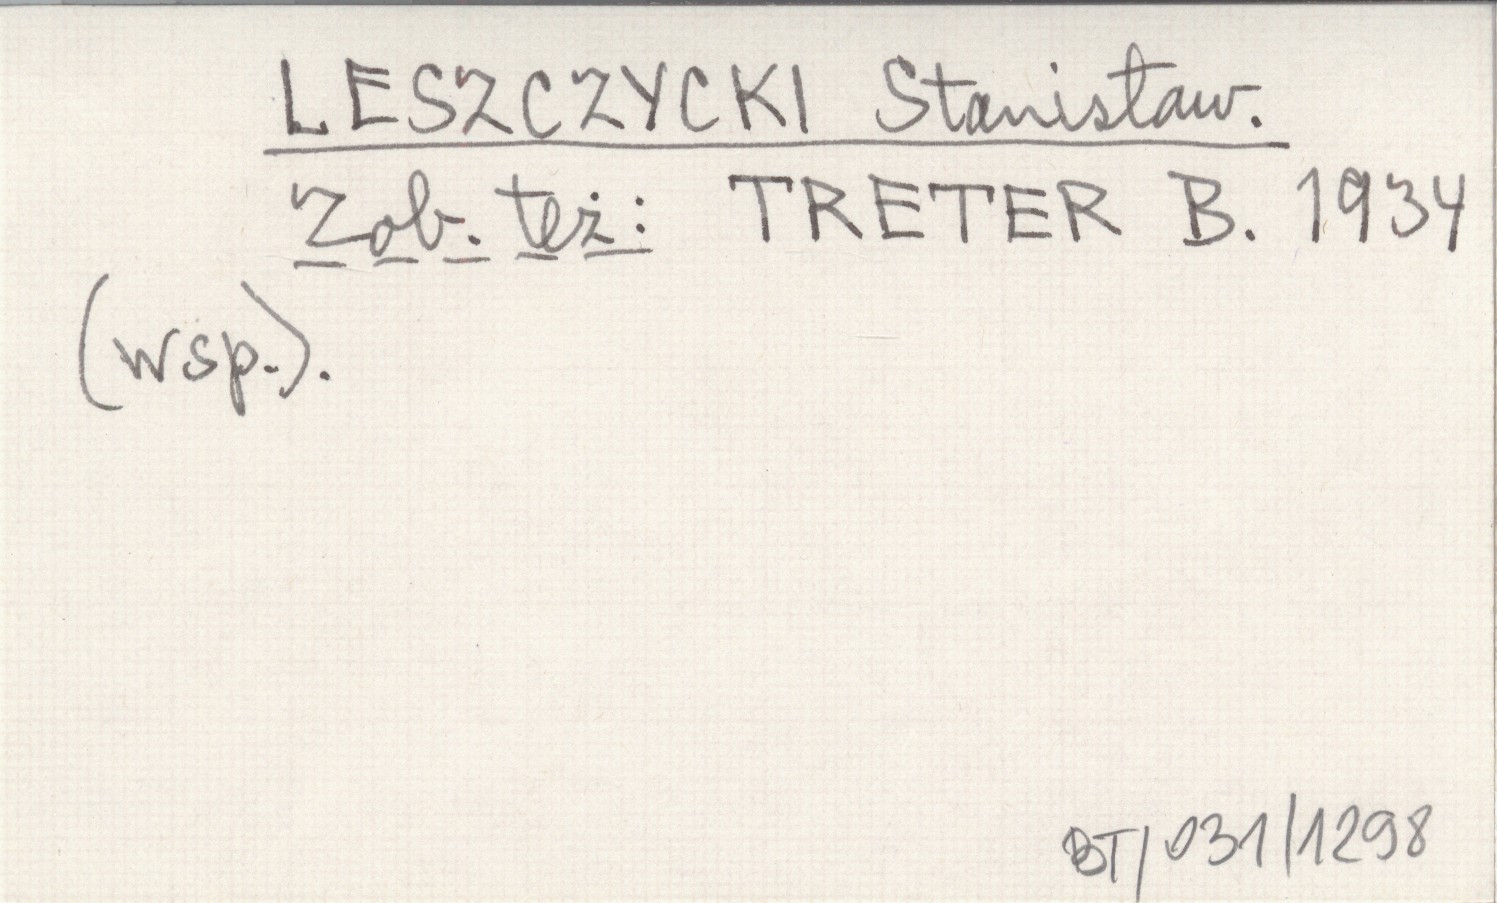 LESZCZYCKI Stanisław.
Zob. też: TRETER B. 1934
(wsp.).
BT/031/1298